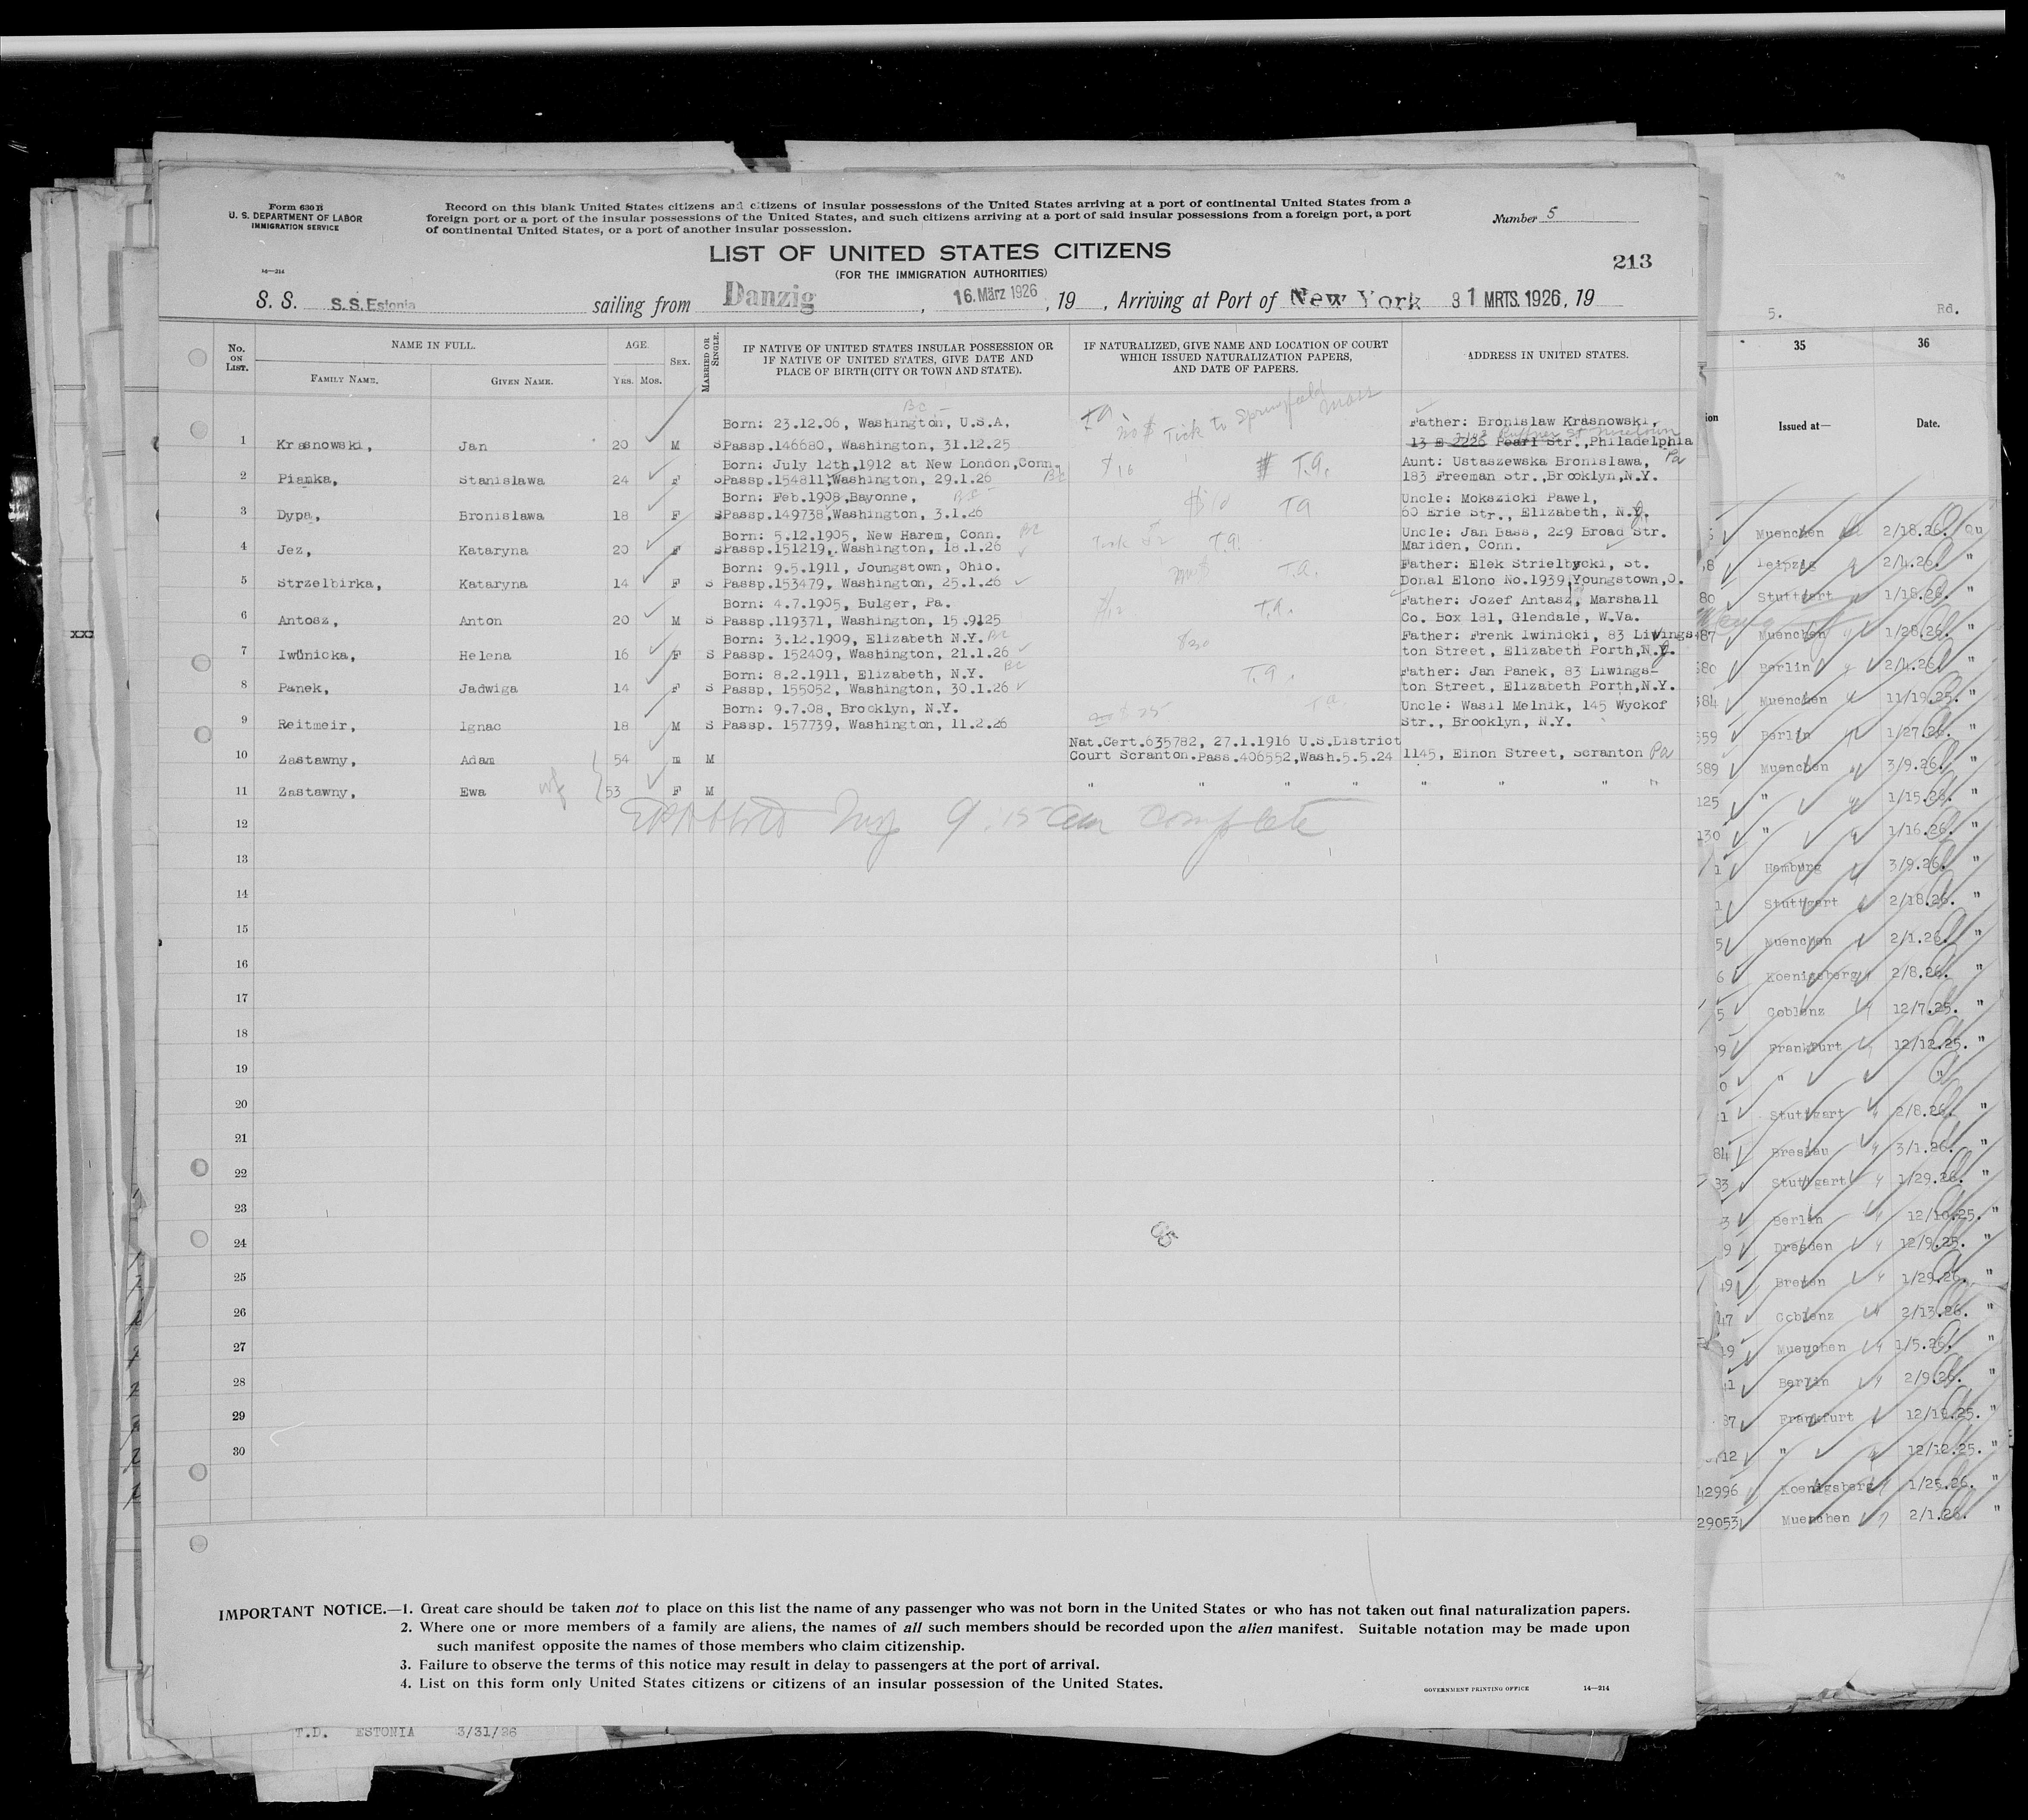 Form 630 B
U. S. DEPARTMENT OF LABOR
IMMIGRATION SERVICE
14—214
Record on this blank United States citizens and citizens of insular possessions of the United States arriving at a port of continental United States from a
foreign port or a port of the insular possessions of the United States, and such citizens arriving at a port of said insular possessions from a foreign port, a port
of continental United States, or a port of another insular possession.
Number 5
LIST OF UNITED STATES CITIZENS
(FOR THE IMMIGRATION AUTHORITIES)
213
S. S. S.S. Estonia sailing from Danzig, 16. März 1926, 19 , Arriving at Port of New York 31 MRTS. 1926, 19
No. ON LIST.
NAME IN FULL.
FAMILY NAME.
GIVEN NAME.
AGE.
YRS. MOS.
SEX.
MARRIED OR SINGLE.
IF NATIVE OF UNITED STATES INSULAR POSSESSION OR
IF NATIVE OF UNITED STATES, GIVE DATE AND
PLACE OF BIRTH (CITY OR TOWN AND STATE).
IF NATURALIZED, GIVE NAME AND LOCATION OF COURT
WHICH ISSUED NATURALIZATION PAPERS,
AND DATE OF PAPERS.
ADDRESS IN UNITED STATES.
BC
TA no $ Tick to Springfield Mass
Born: 23.12.06, Washington, U.S.A, Father: Bronislaw Krasnowski,
1 Krasnowski, Jan 20 M S Passp.146680, Washington, 31.12.25 13 S 2226 Pearl Str.,Philadelphia Pa
Born: July 12th,1912 at New London,Conn. Aunt: Ustaszewska Bronislawa,
2 Pianka, Stanislawa 24 F S Passp.154811,Washington, 29.1.26 BC $16 T.A. 183 Freeman Str.,Brooklyn,N.Y.
Born: Feb.1908,Bayonne, BC Uncle: Mokszicki Pawel,
3 Dypa, Bronislawa 18 F S Passp.149738,Washington, 3.1.26 $10 TA 60 Erie Str., Elizabeth, N.Y.
Born: 5.12.1905, New Harem, Conn. BC Uncle: Jan Bass, 229 Broad Str.
4 Jez, Kataryna 20 F S Passp.151219, Washington, 18.1.26 T.A. Mariden, Conn.
Born: 9.5.1911, Joungstown, Ohio. Father: Elek Strielbycki, St.
5 Strzelbirka, Kataryna 14 F S Passp.153479, Washington, 25.1.26 T.A. Donal Elono No.1939,Youngstown,O.
Born: 4.7.1905, Bulger, Pa. Father: Jozef Antasz, Marshall
6 Antosz, Anton 20 M S Passp.119371, Washington, 15.9125 $12 T.A. Co. Box 181, Glendale, W.Va.
Born: 3.12.1909, Elizabeth N.Y. BC Father: Frenk Iwinicki, 83 Livings-
7 Iwünicka, Helena 16 F S Passp. 152409, Washington, 21.1.26 $30 ton Street, Elizabeth Porth,N.Y.
Born: 8.2.1911, Elizabeth, N.Y. BC Father: Jan Panek, 83 Liwings-
8 Panek, Jadwiga 14 F S Passp, 155052, Washington, 30.1.26 T.A. ton Street, Elizabeth Porth,N.Y.
Born: 9.7.08, Brooklyn, N.Y. Uncle: Wasil Melnik, 145 Wyckof
9 Reitmeir, Ignac 18 M S Passp. 157739, Washington, 11.2.26 $25 TA. Str., Brooklyn, N.Y.
Nat.Cert.635782, 27.1.1916 U.S.District
10 Zastawny, Adam 54 m M Court Scranton.Pass.406552,Wash.5.5.24 1145, Einon Street, Scranton Pa
11 Zastawny, Ewa wf 53 F M " " " " " " " "
9:15 am complete
12
13
14
15
16
17
18
19
20
21
22
23
24
25
26
27
28
29
30
IMPORTANT NOTICE.—1. Great care should be taken not to place on this list the name of any passenger who was not born in the United States or who has not taken out final naturalization papers.
2. Where one or more members of a family are aliens, the names of all such members should be recorded upon the alien manifest. Suitable notation may be made upon
such manifest opposite the names of those members who claim citizenship.
3. Failure to observe the terms of this notice may result in delay to passengers at the port of arrival.
4. List on this form only United States citizens or citizens of an insular possession of the United States.
GOVERNMENT PRINTING OFFICE 14—214
T.D. ESTONIA 3/31/26
XXX
5. Rd.
35 36
Issued at— Date.
Muenchen 2/18.26. Qu
Leipzig 2/4.26. "
80 Stuttgart 1/18.26. "
487 Muenchen 1/28.26. "
580 Berlin 2/4.26. "
584 Muenchen 11/19.25. "
559 Berlin 1/27.26. "
589 Muenchen 3/9.26. "
125 " 1/15.26. "
130 " 1/16.26. "
1 Hamburg 3/9.26. "
1 Stuttgart 2/18.26. "
5 Muenchen 2/1.26. "
6 Koenigsberg 2/8.26. "
5 Coblenz 12/7.25. "
99 Frankfurt 12/12.25. "
0 " "
21 Stuttgart 2/8.26. "
84 Breslau 3/1.26. "
33 Stuttgart 1/29.26. "
3 Berlin 12/10.25. "
9 Dresden 12/9.25. "
49 Bremen 1/29.26. "
47 Coblenz 2/13.26. "
19 Muenchen 1/5.26. "
41 Berlin 2/9.26. "
87 Frankfurt 12/19.25. "
12 " 12/12.25. "
42996 Koenigsberg 1/25.26. "
29053 Muenchen 2/1.26. "